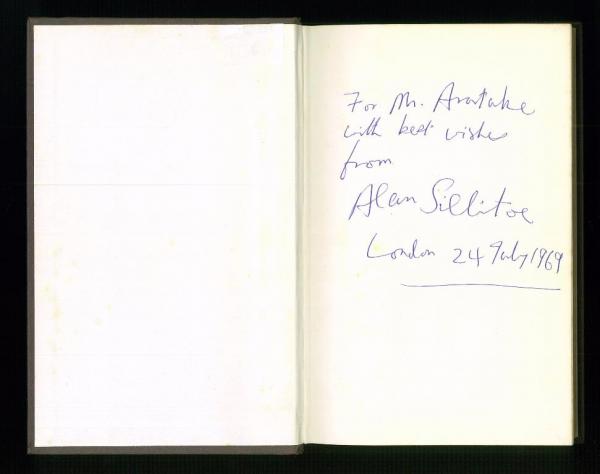 For Mr. Aratake
with best wishes
from
Alan Sillitoe
London 24 July 1969